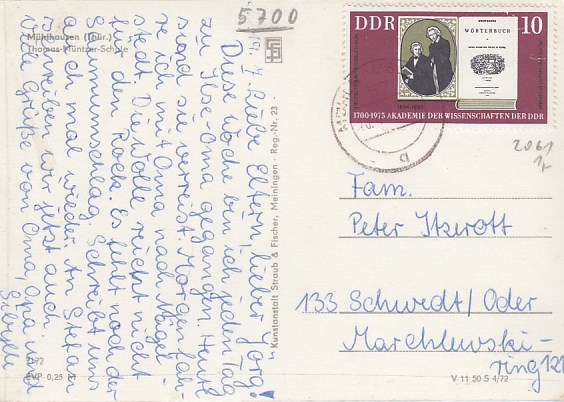 5700
Mühlhausen (Thür.)
Thomas-Müntzer-Schule
9.7. Liebe Eltern, lieber Jörg!
Diese Woche bin ich jeden Tag
zu Ilse-Oma gegangen. Heute
sind sie verreist. Morgen fah-
re ich mit Oma nach Nägel-
stedt. Die Wolle reicht nicht
für den Rock. Es fehlt noch der
Saumumschlag. Schreibt uns
doch mal wieder. An Stefan
schreiben wir jetzt auch.
Viele Grüße von Oma, Opa und
Sibylle
Kunstanstalt Straub & Fischer, Meiningen · Reg.-Nr. 23
EVP 0,25 M
V 11 50 S 4/72
DDR
10
DEUTSCHES
WÖRTERBUCH
1700-1975 AKADEMIE DER WISSENSCHAFTEN DER DDR
2061
Fam.
Peter Itzerott
133 Schwedt/Oder
Marchlewski-
ring 121